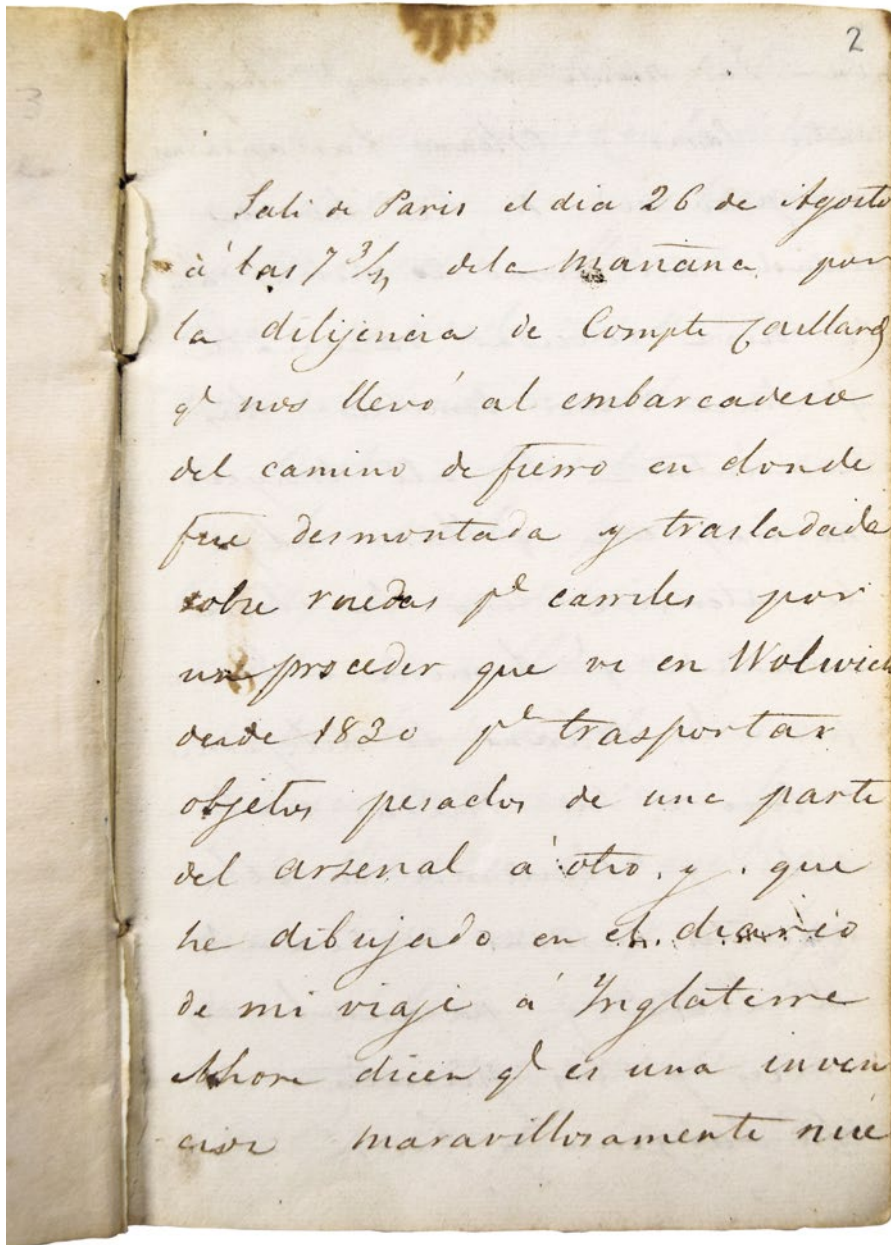 2
Sali de Paris el dia 26 de Agosto
á las 7 3/4 dela mañana por
la dilijencia de Compte Caillard
qe nos llevó al embarcadero
del camino de fierro en donde
fue desmontada y trasladada
sobre ruedas pa carriles por
un proceder que vi en Wolwich
desde 1830 pa trasportar
objetos pesados de una parte
del arsenal á otro, y que
he dibujado en el diario
de mi viaje á Ynglaterra
Ahora dicen qe es una inven
cion maravillosamente nue